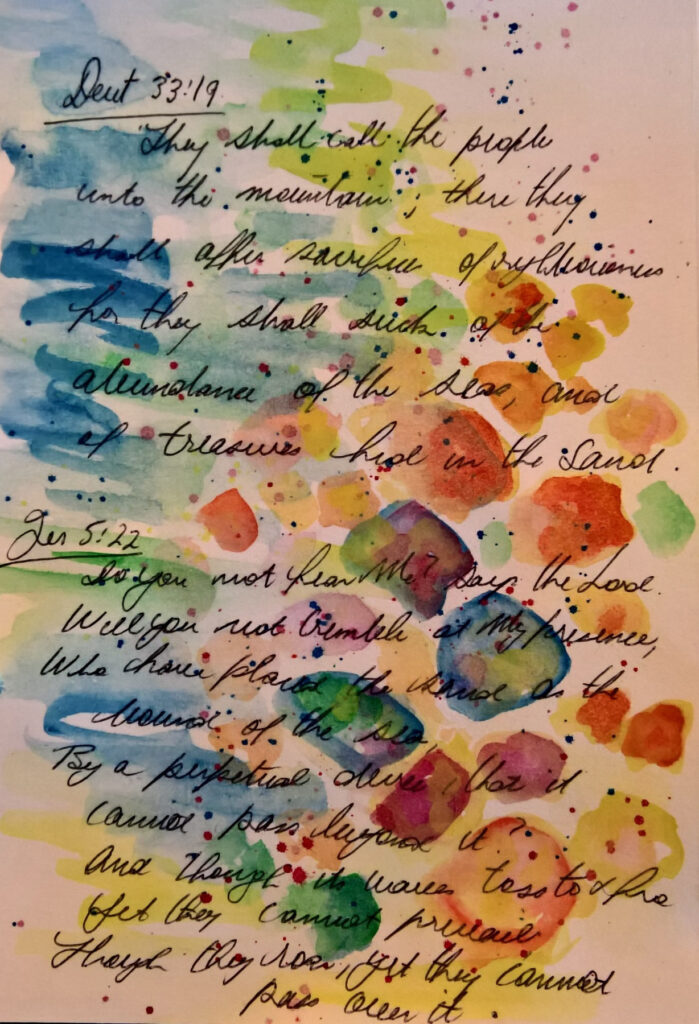 Deut 33:19
They shall call the people
unto the mountain; there they
shall offer sacrifices of righteousness
for they shall suck of the
abundance of the seas, and
of treasures hid in the sand.
Jer 5:22
Do you not fear Me? says the Lord.
Will you not tremble at My presence,
Who have placed the sand as the
bound of the sea,
By a perpetual decree, that it
cannot pass beyond it?
And though its waves toss to & fro
Yet they cannot prevail
Though they roar, yet they cannot
pass over it.